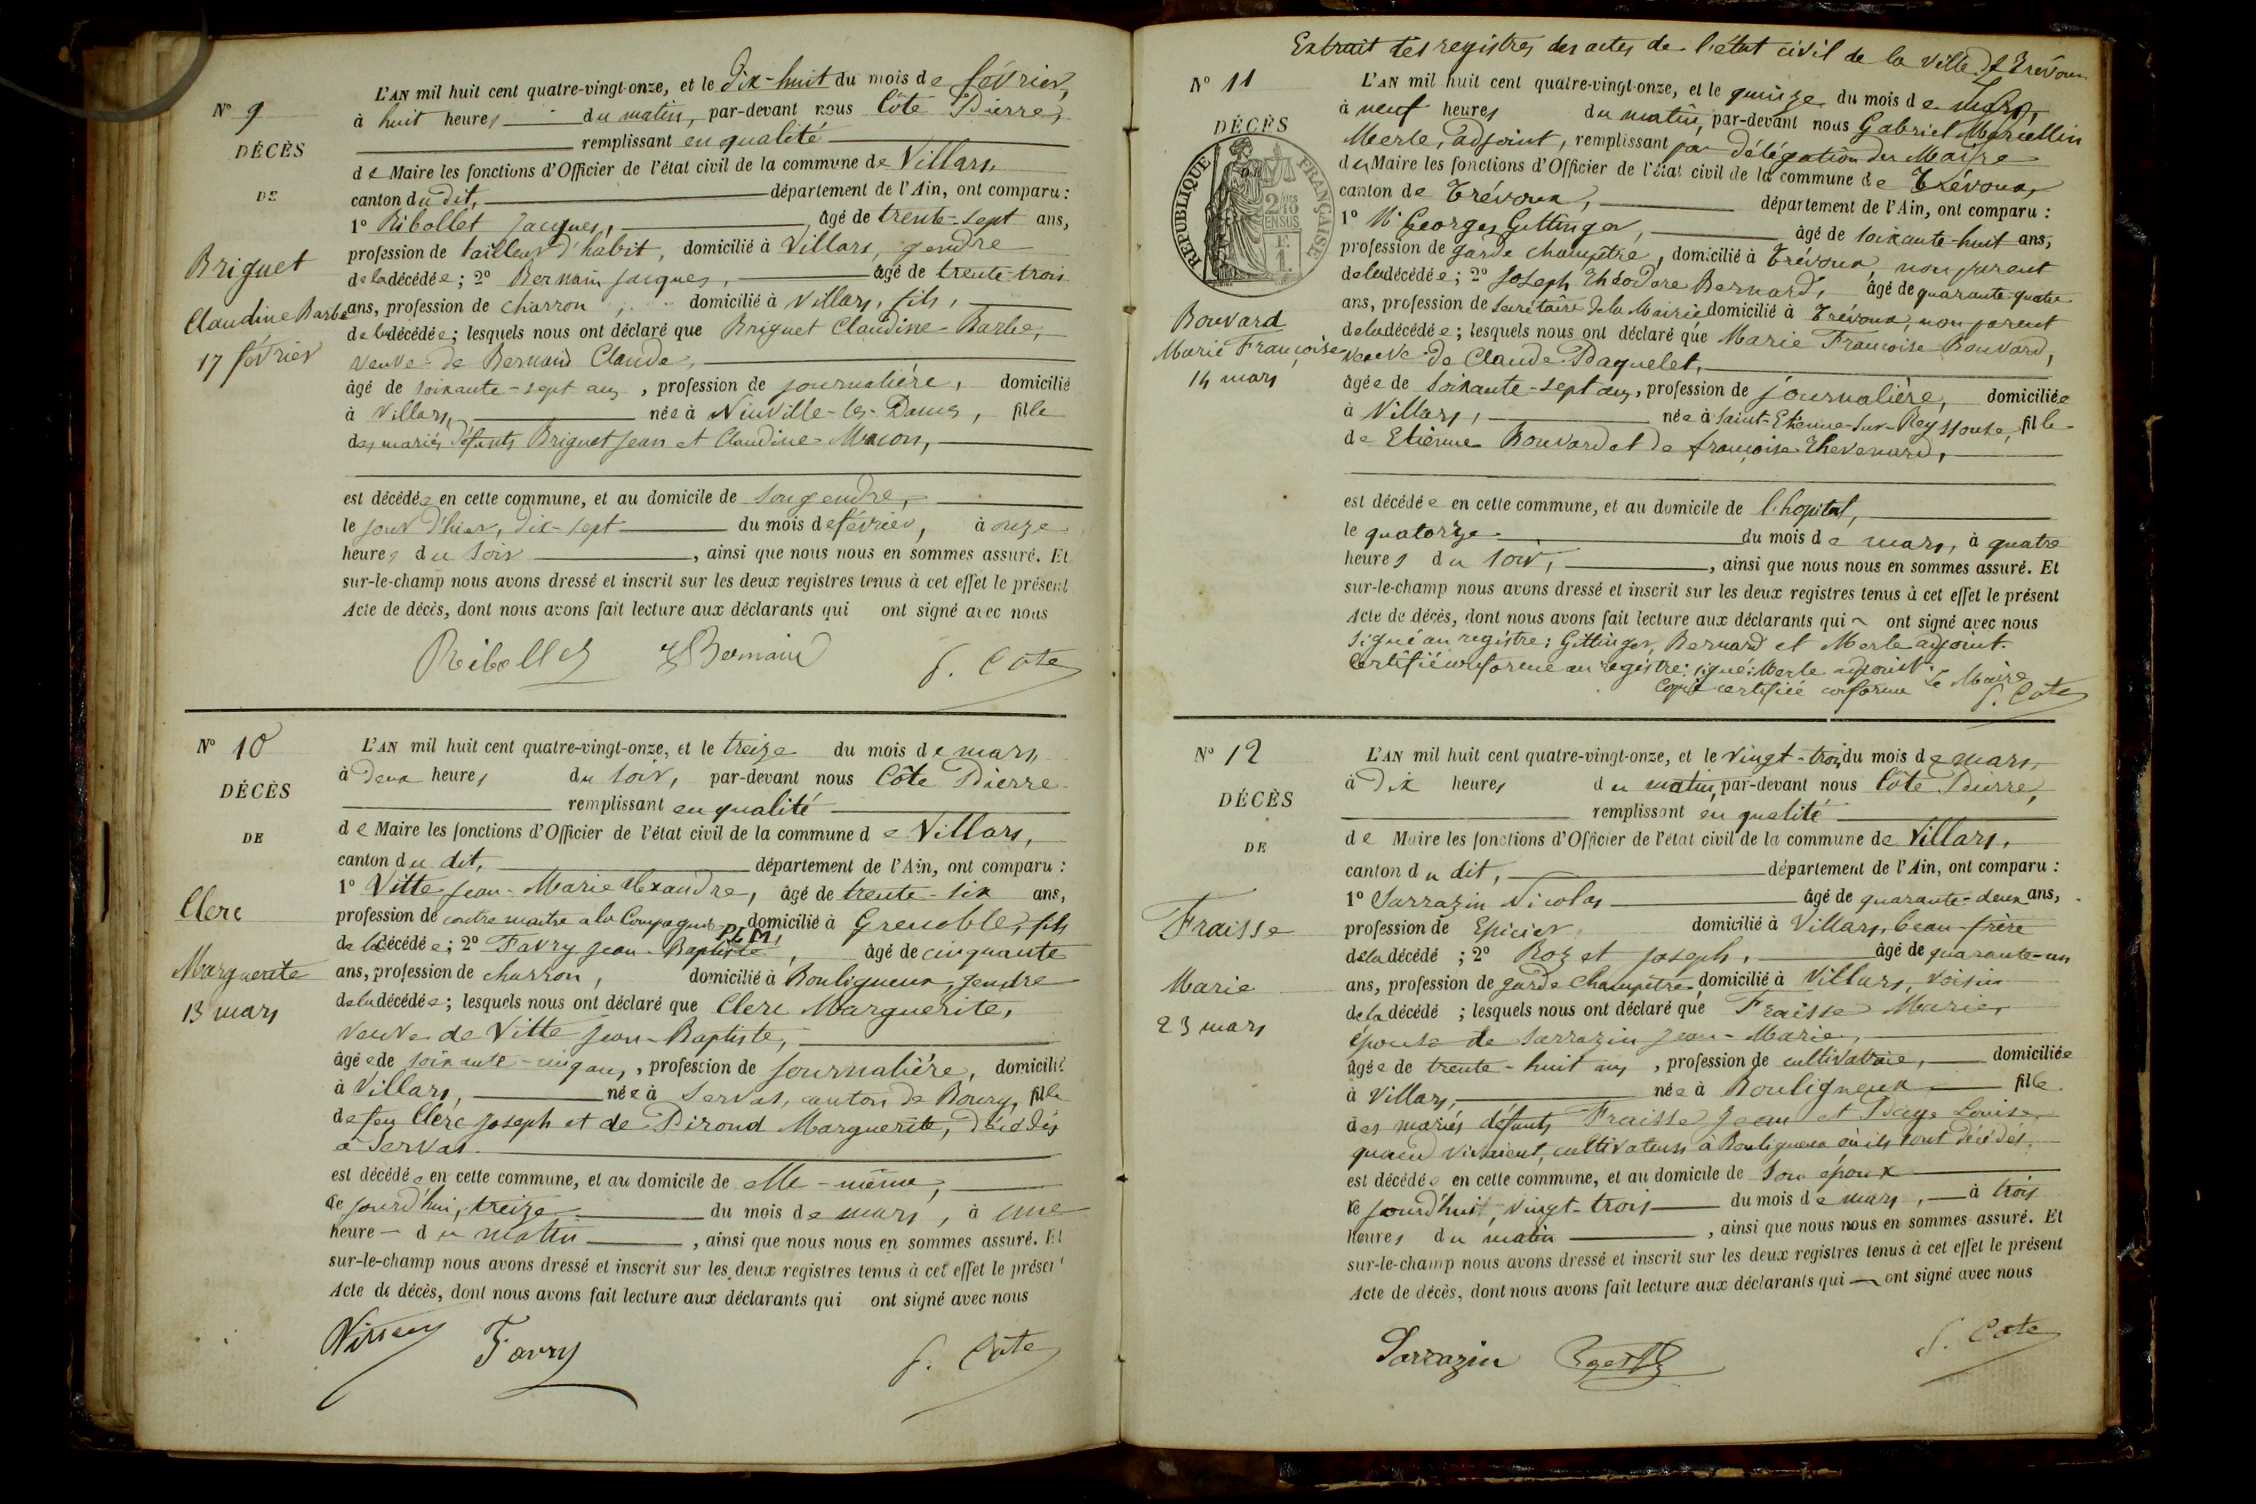 N° 9
DÉCÈS
DE
Briguet
Claudine Barbe
17 février
L'AN mil huit cent quatre-vingt-onze, et le dix-huit du mois de février,
à huit heures du matin, par-devant nous Côte Pierre,
remplissant en qualité
de Maire les fonctions d'Officier de l'état civil de la commune de Villars,
canton du dit, département de l'Ain, ont comparu :
1° Ribollet Jacques, âgé de trente-sept ans,
profession de tailleur d'habit, domicilié à Villars, gendre
de la décédée ; 2° Bernain Jacques, âgé de trente-trois
ans, profession de charron, domicilié à Villars, fils,
de la décédée ; lesquels nous ont déclaré que Briguet Claudine-Barbe,
veuve de Bernain Claude,
âgé de soixante-sept ans, profession de journalière, domicilié
à Villars, née à Neuville-les-Dames, fille
des mariés défunts Briguet Jean et Claudine Macon,
est décédée en cette commune, et au domicile de son gendre,
le jour d'hier, dix-sept du mois de février, à onze
heures du soir, ainsi que nous nous en sommes assuré. Et
sur-le-champ nous avons dressé et inscrit sur les deux registres tenus à cet effet le présent
Acte de décès, dont nous avons fait lecture aux déclarants qui ont signé avec nous
Ribollet Bernain P. Côte
N° 10
DÉCÈS
DE
Clerc
Marguerite
13 mars
L'AN mil huit cent quatre-vingt-onze, et le treize du mois de mars
à deux heures du soir, par-devant nous Côte Pierre
remplissant en qualité
de Maire les fonctions d'Officier de l'état civil de la commune de Villars,
canton du dit, département de l'Ain, ont comparu :
1° Vitte Jean-Marie Alexandre, âgé de trente-six ans,
profession de contre maître à la Compagnie PLM, domicilié à Grenoble, fils
de la décédée ; 2° Favry Jean-Baptiste, âgé de cinquante
ans, profession de charron, domicilié à Bouligneux, gendre
de la décédée ; lesquels nous ont déclaré que Clerc Marguerite,
veuve de Vitte Jean-Baptiste,
âgée de soixante-cinq ans, profession de journalière, domicilié
à Villars, née à Servas, canton de Bourg, fille
de feu Clerc Joseph et de Pirond Marguerite, décédés
à Servas
est décédée en cette commune, et au domicile de elle-même,
ce jourd'hui, treize du mois de mars, à une
heure du matin, ainsi que nous nous en sommes assuré. Et
sur-le-champ nous avons dressé et inscrit sur les deux registres tenus à cet effet le présent
Acte de décès, dont nous avons fait lecture aux déclarants qui ont signé avec nous
Favry P. Côte
Extrait des registres des actes de l'état civil de la ville de Trévoux
N° 11
DÉCÈS
RÉPUBLIQUE FRANÇAISE
2/10 EN SUS
Bouvard
Marie Françoise
14 mars
L'AN mil huit cent quatre-vingt-onze, et le quinze du mois de mars,
à neuf heures du matin, par-devant nous Gabriel Marcellin
Merle, adjoint, remplissant par délégation du Maire
du Maire les fonctions d'Officier de l'état civil de la commune de Trévoux,
canton de Trévoux, département de l'Ain, ont comparu :
1° Mr Georges Gittinger, âgé de soixante-huit ans,
profession de garde champêtre, domicilié à Trévoux, non parent
de la décédée ; 2° Joseph Théodore Bernard, âgé de quarante-quatre
ans, profession de secrétaire de la Mairie domicilié à Trévoux, non parent
de la décédée ; lesquels nous ont déclaré que Marie Françoise Bouvard,
veuve de Claude Paquelet,
âgée de soixante-sept ans, profession de journalière, domiciliée
à Villars, née à Saint-Etienne-sur-Reyssouze, fille
de Etienne Bouvard et de françoise Thevenard,
est décédée en cette commune, et au domicile de l'hopital,
le quatorze du mois de mars, à quatre
heures du soir, ainsi que nous nous en sommes assuré. Et
sur-le-champ nous avons dressé et inscrit sur les deux registres tenus à cet effet le présent
Acte de décès, dont nous avons fait lecture aux déclarants qui ont signé avec nous
Signé au registre : Gittinger, Bernard et Merle adjoint.
Certifié conforme au registre : signé : Merle adjoint.
Copie certifiée conforme Le Maire
P. Côte
N° 12
DÉCÈS
DE
Fraisse
Marie
23 mars
L'AN mil huit cent quatre-vingt-onze, et le vingt-trois du mois de mars,
à dix heures du matin, par-devant nous Côte Pierre,
remplissant en qualité
de Maire les fonctions d'Officier de l'état civil de la commune de Villars,
canton du dit, département de l'Ain, ont comparu :
1° Sarrazin Nicolas âgé de quarante-deux ans,
profession de Epicier, domicilié à Villars, beau-frère
de la décédé ; 2° Rozet Joseph, âgé de quarante-un
ans, profession de garde champêtre, domicilié à Villars, voisin
de la décédé ; lesquels nous ont déclaré que Fraisse Marie,
épouse de Sarrazin Jean-Marie,
âgée de trente-huit ans, profession de cultivatrice, domiciliée
à Villars, née à Bouligneux fille
des mariés défunts Fraisse Jean et Page Louise,
quand vivaient, cultivateurs à Bouligneux où ils sont décédés,
est décédée en cette commune, et au domicile de son époux
ce jourd'hui, vingt-trois du mois de mars, à trois
heures du matin, ainsi que nous nous en sommes assuré. Et
sur-le-champ nous avons dressé et inscrit sur les deux registres tenus à cet effet le présent
Acte de décès, dont nous avons fait lecture aux déclarants qui ont signé avec nous
Sarrazin P. Côte